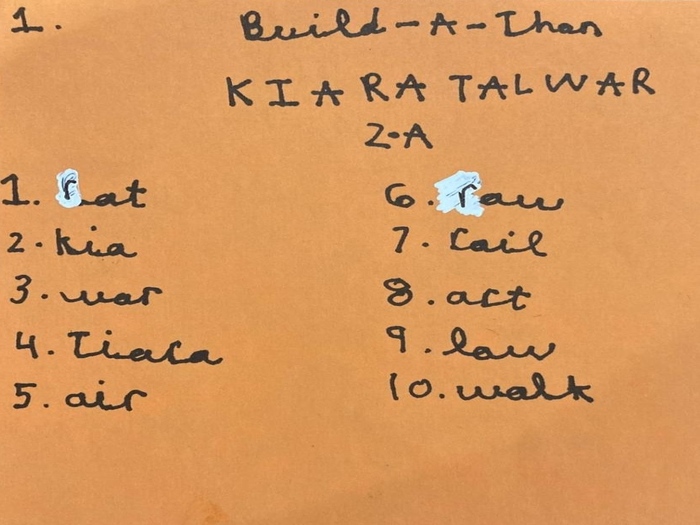 1.
Build-A-Thon
KIARA TALWAR
2-A
1. rat
2. kia
3. war
4. Tiara
5. air
6. raw
7. rail
8. art
9. law
10. walk